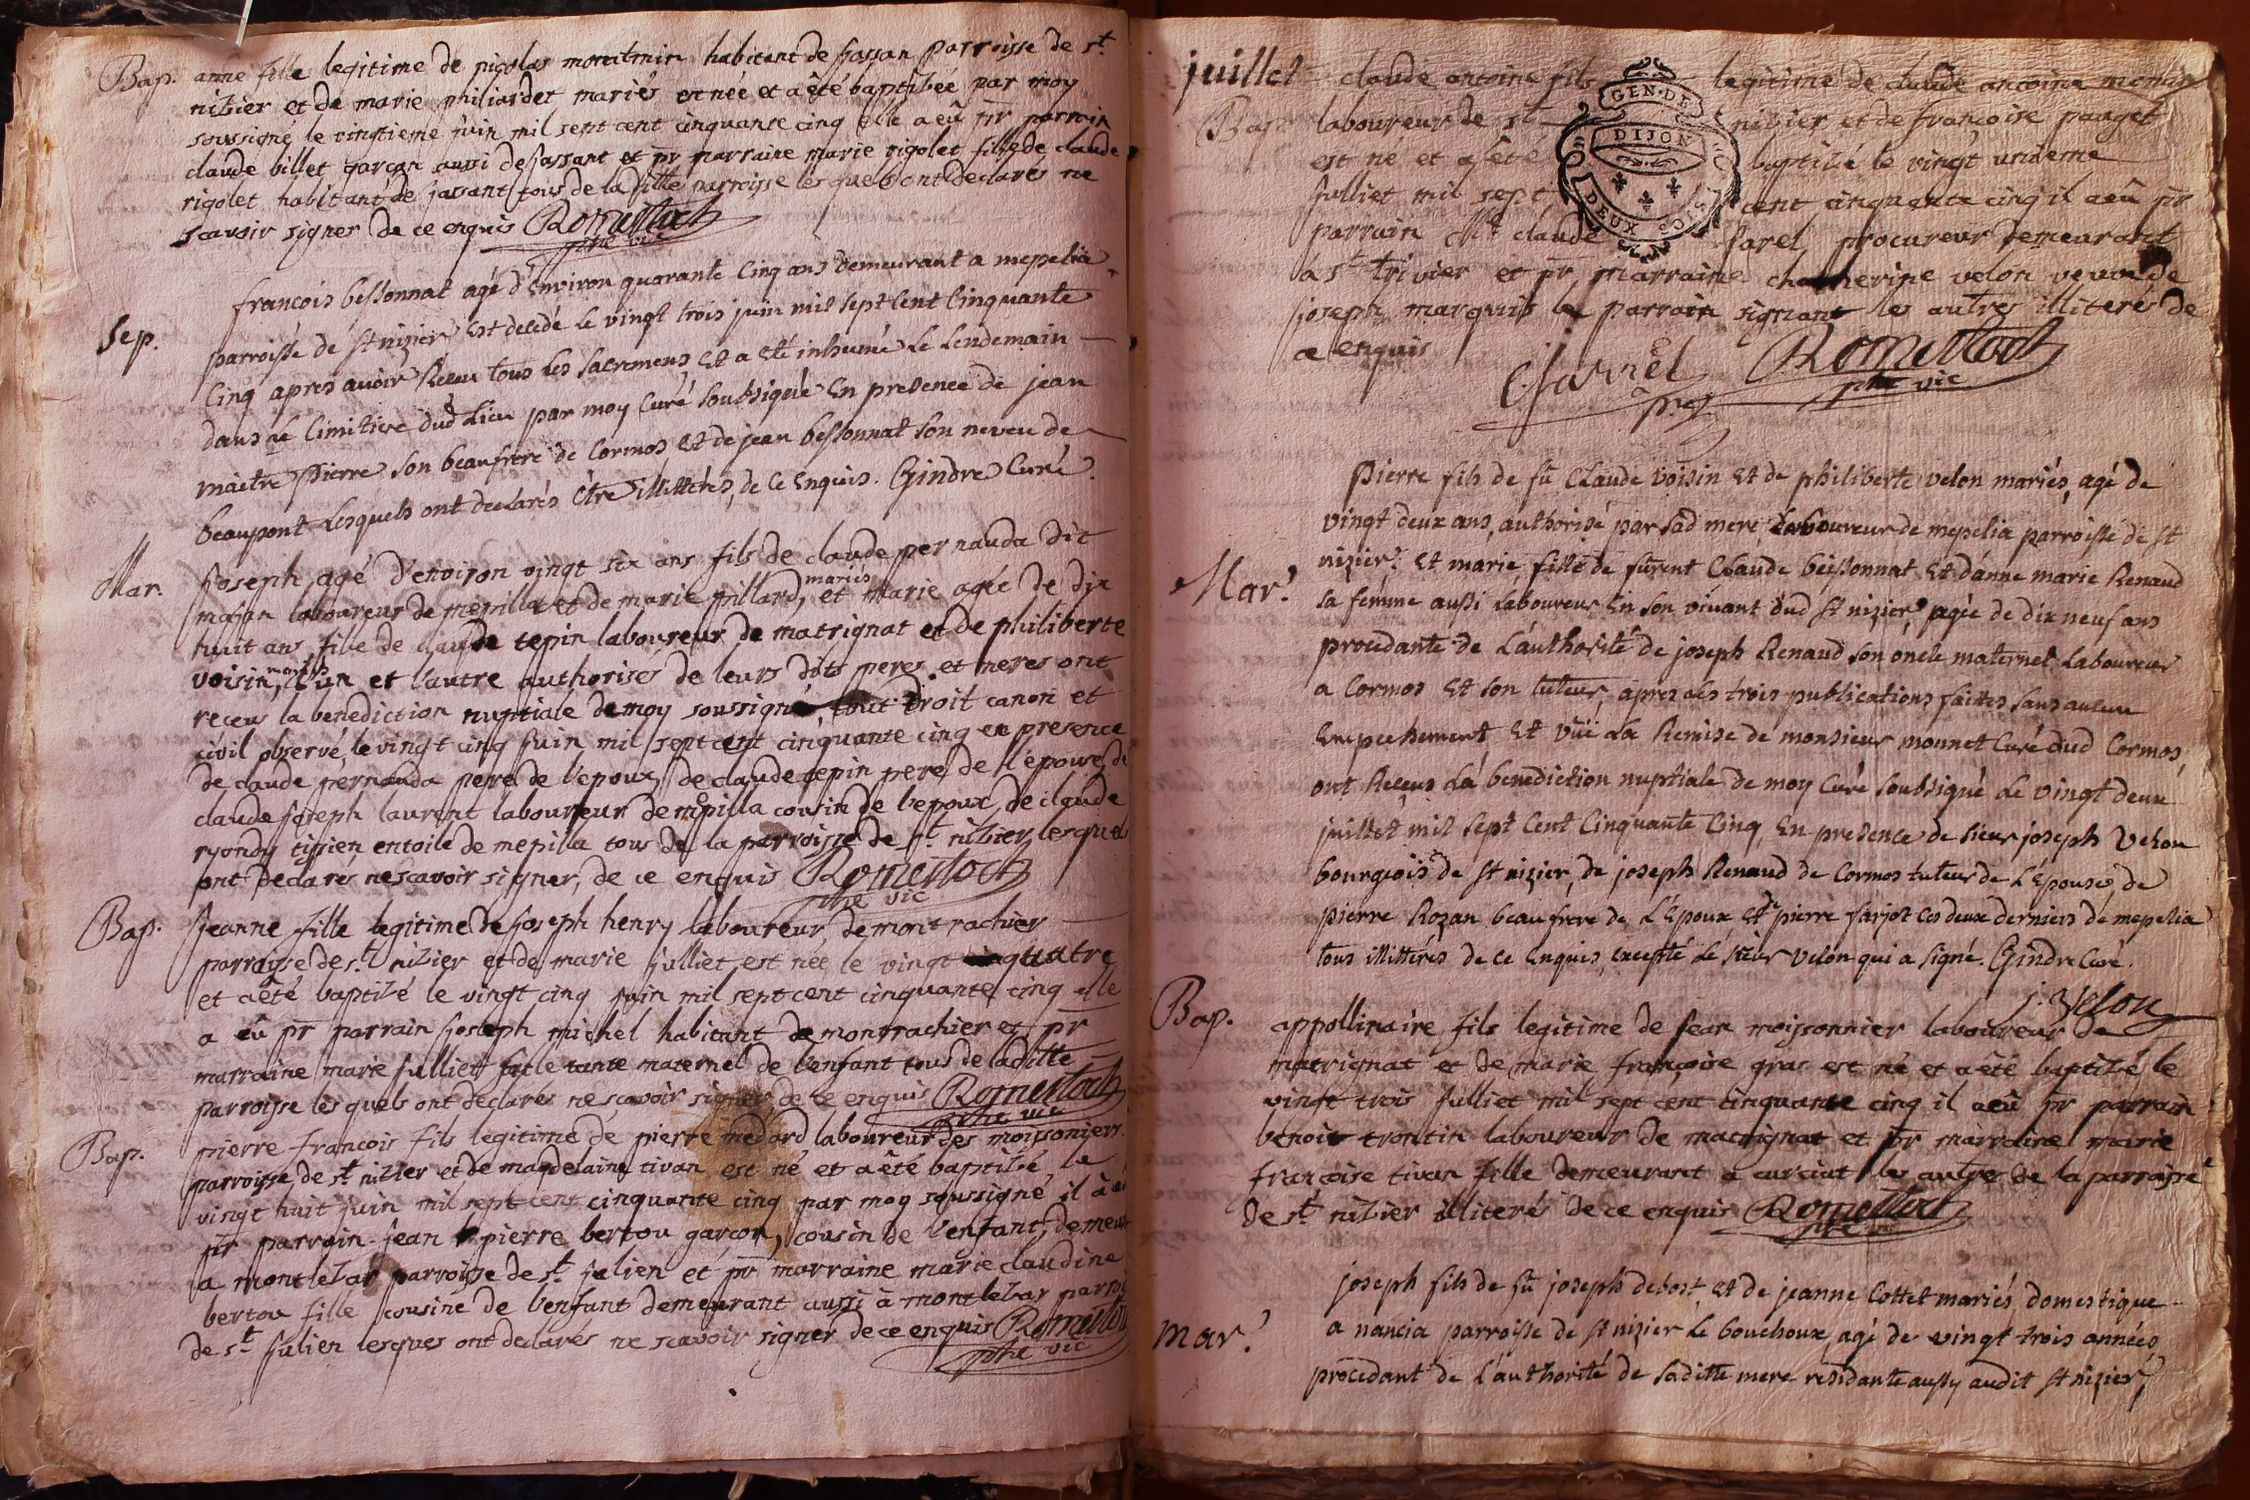 Bap. anne fille legitime de nicolas montmin habitant de jassan parroisse de st
nizier et de marie philiardet mariés est née et a êté baptisée par moy
soussigné le vingtieme juin mil sept cent cinquante cinq elle a eû pr parrain
claude billet garçon aussi de jassant et pr marraine marie rigolet fille de claude
rigolet habitant de jassant tous de la ditte parroisse les quels ont declarés ne
scavoir signer de ce enquis Romestoch
ptre vic
francois bessonnat agé d'Environ quarante Cinq ans demeurant a mepelia
Sep. parroisse de st nizier Est decedé Le vingt trois juin mil sept Cent Cinquante
Cinq apres avoir Receu tous Les Sacremens Et a eté inhumé Le Lendemain
dans Le Cimitiere dud Lieu par moy Curé Soubsigné En presence de jean
maitre Pierre son beaufrere de Cormos Et de jean bessonnat son neveu de
beaupont Lesquels ont declarés être illittérés, de Ce Enquis. Gindre Curé.
Mar. Joseph agé d'environ vingt six ans fils de claude pernauda dit
mariés
mazan laboureur de mepilla et de marie pillard, et marie agée de dix
huit ans fille de claude tepin laboureur de matrignat et de philiberte
mariés
voisin, l'un et l'autre authorises de leurs dits peres et meres ont
receus la benediction nuptiale de moy soussigné, tout droit canon et
civil observé, le vingt cinq juin mil sept cent cinquante cinq en presence
de claude pernauda pere de l'epoux, de claude tepin pere de l'épouse, de
claude joseph laurent laboureur de mepilla cousin de l'epoux, de claude
ryondy tissien en toile de mepilla tous de la parroisse de st nizier lesquels
ont declarés ne scavoir signer, de ce enquis Romestoch
ptre vic
Bap. Jeanne fille legitime de joseph henry laboureur de montrachier
parroisse de st nizier et de marie julliet est née le vingt quatre
et a êté baptisé le vingt cinq juin mil sept cent cinquante cinq elle
a eû pr parrain joseph michel habitant de montrachier et pr
marraine marie julliet fille tante maternel de l'enfant tous de laditte
parroisse les quels ont declarés ne scavoir signer de ce enquis Romestoch
ptre vic
Bap. pierre francois fils legitime de pierre medard laboureur des moissoniers
parroisse de st nizier et de magdelaine tivan est né et a êté baptisé le
vingt huit juin mil sept cent cinquante cinq par moy soussigné il a eu
pr parrain jean pierre bertou garçon, cousin de l'enfant, demeu
a montlezar parroisse de st julien et pr marraine marie claudine
bertou fille cousine de l'enfant demeurant aussi à montlezar parroi
de st julien lesques ont declarés ne scavoir signer de ce enquis Romestoch
ptre vic
juillet claude antoine fils legitime de claude antoine monin
Bap. laboureur de st nizier et de françoise pauget
est né et a êté baptisé le vingt unieme
julliet mil sept cent cinquante cinq il a eû pr
parrain Mr claude farel procureur demeurant
GEN. DE
DIJON
DEUX
à st trivier et pr marraine chatherine velon veuve de
joseph marquis le parrain signant les autres illiterés de
ce enquis
Romestoch
ptre vic
Pierre fils de fû Claude Voisin Et de philiberte velon mariés, agé de
vingt deux ans, authorisé par sad mere, Laboureur de mepelia parroisse de st
Mar. nizier, Et marie fille de fûrent Claude béissonnat Et d'anne marie Renaud
sa femme aussi Laboureur En son vivant dud st nizier, agée de dix neuf ans
procedante de L'authorité de joseph Renaud son oncle maternel Laboureur
a Cormos Et son tuteur, apres les trois publications faites sans aucun
Empechement, Et vüe La Remise de monsieur monnet Curé dud Cormos,
ont Receus La benediction nuptiale de moy Curé Soubsigné Le vingt deux
juillet mil sept Cent Cinquante Cinq, En presence de sieur joseph Velon
bourgeois de st nizier, de joseph Renaud de Cormos tuteur de L'Epouse, de
pierre Rozan beaufrere de L'Epoux Et de pierre farjot Ces deux derniers de mepelia
tous illittérés de Ce Enquis, excepté Le sieur Velon qui a signé. Gindre Curé.
j. Velon
Bap. appollinaire fils legitime de jean moissonnier laboureur de
matrignat et de marie françoise gras est né et a êté baptisé le
vingt trois julliet mil sept cent cinquante cinq il a eû pr parrain
benoit trontin laboureur de matrignat et pr marraine marie
françoise tivan fille demeurant a curciat les autres de la parroisse
de st nizier illiterés de ce enquis Romestoch
ptre vic
joseph fils de fû joseph debost Et de jeanne Cottet mariés, domestique
Mar. a nancia parroisse de st nizier Le bouchoux, agé de vingt trois années,
procedant de L'authorité de saditte mere residante aussy audit st nizier,